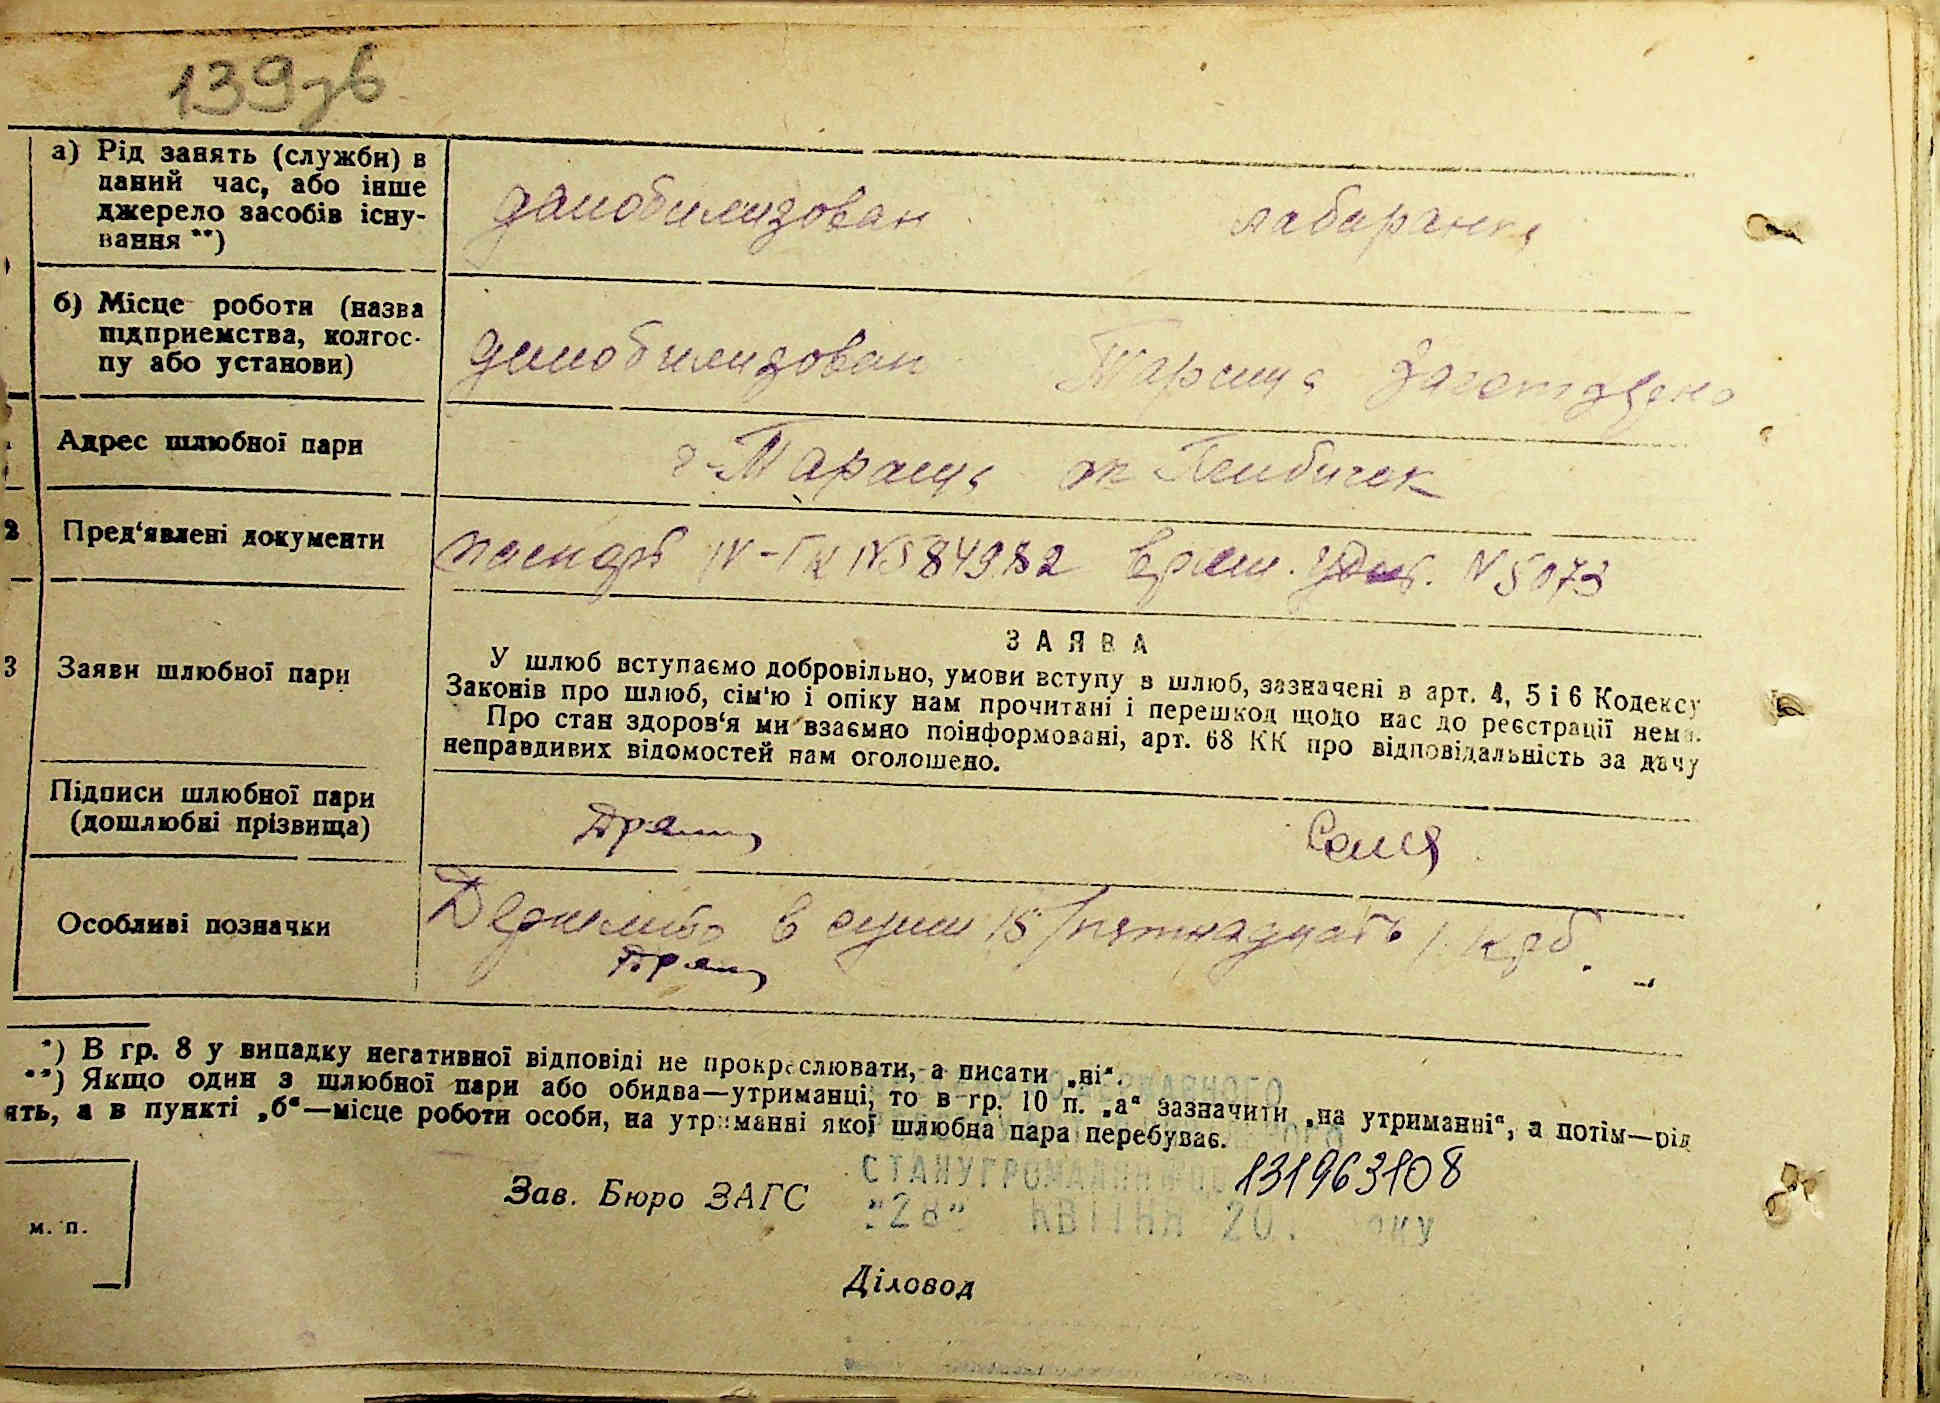 139зв
а) Рід занять (служби) в
даний час, або інше
джерело засобів існу-
вання **)
демобилизован лаборантка
б) Місце роботи (назва
підприємства, колгос-
пу або установи)
демобилизован Тараща
Адрес шлюбної пари
г. Тараща
2 Пред‘явлені документи
паспорт № 584982 врем. удост. № 5073
ЗАЯВА
3 Заяви шлюбної пари
У шлюб вступаємо добровільно, умови вступу в шлюб, зазначені в арт. 4, 5 і 6 Кодексу
Законів про шлюб, сім‘ю і опіку нам прочитані і перешкод щодо нас до реєстрації нема.
Про стан здоров‘я ми взаємно поінформовані, арт. 68 КК про відповідальність за дачу
неправдивих відомостей нам оголошено.
Підписи шлюбної пари
(дошлюбні прізвища)
Особливі позначки
в сумі 15 /пятнадцать/ крб.
*) В гр. 8 у випадку негативної відповіді не прокреслювати, а писати „ні“.
**) Якщо один з шлюбної пари або обидва—утриманці, то в гр. 10 п. „а“ зазначити „на утриманні“, а потім—рід
ять, а в пункті „б“—місце роботи особи, на утриманні якої шлюбна пара перебуває.
131963108
Зав. Бюро ЗАГС
"28" КВІТНЯ 20 року
м. п.
Діловод